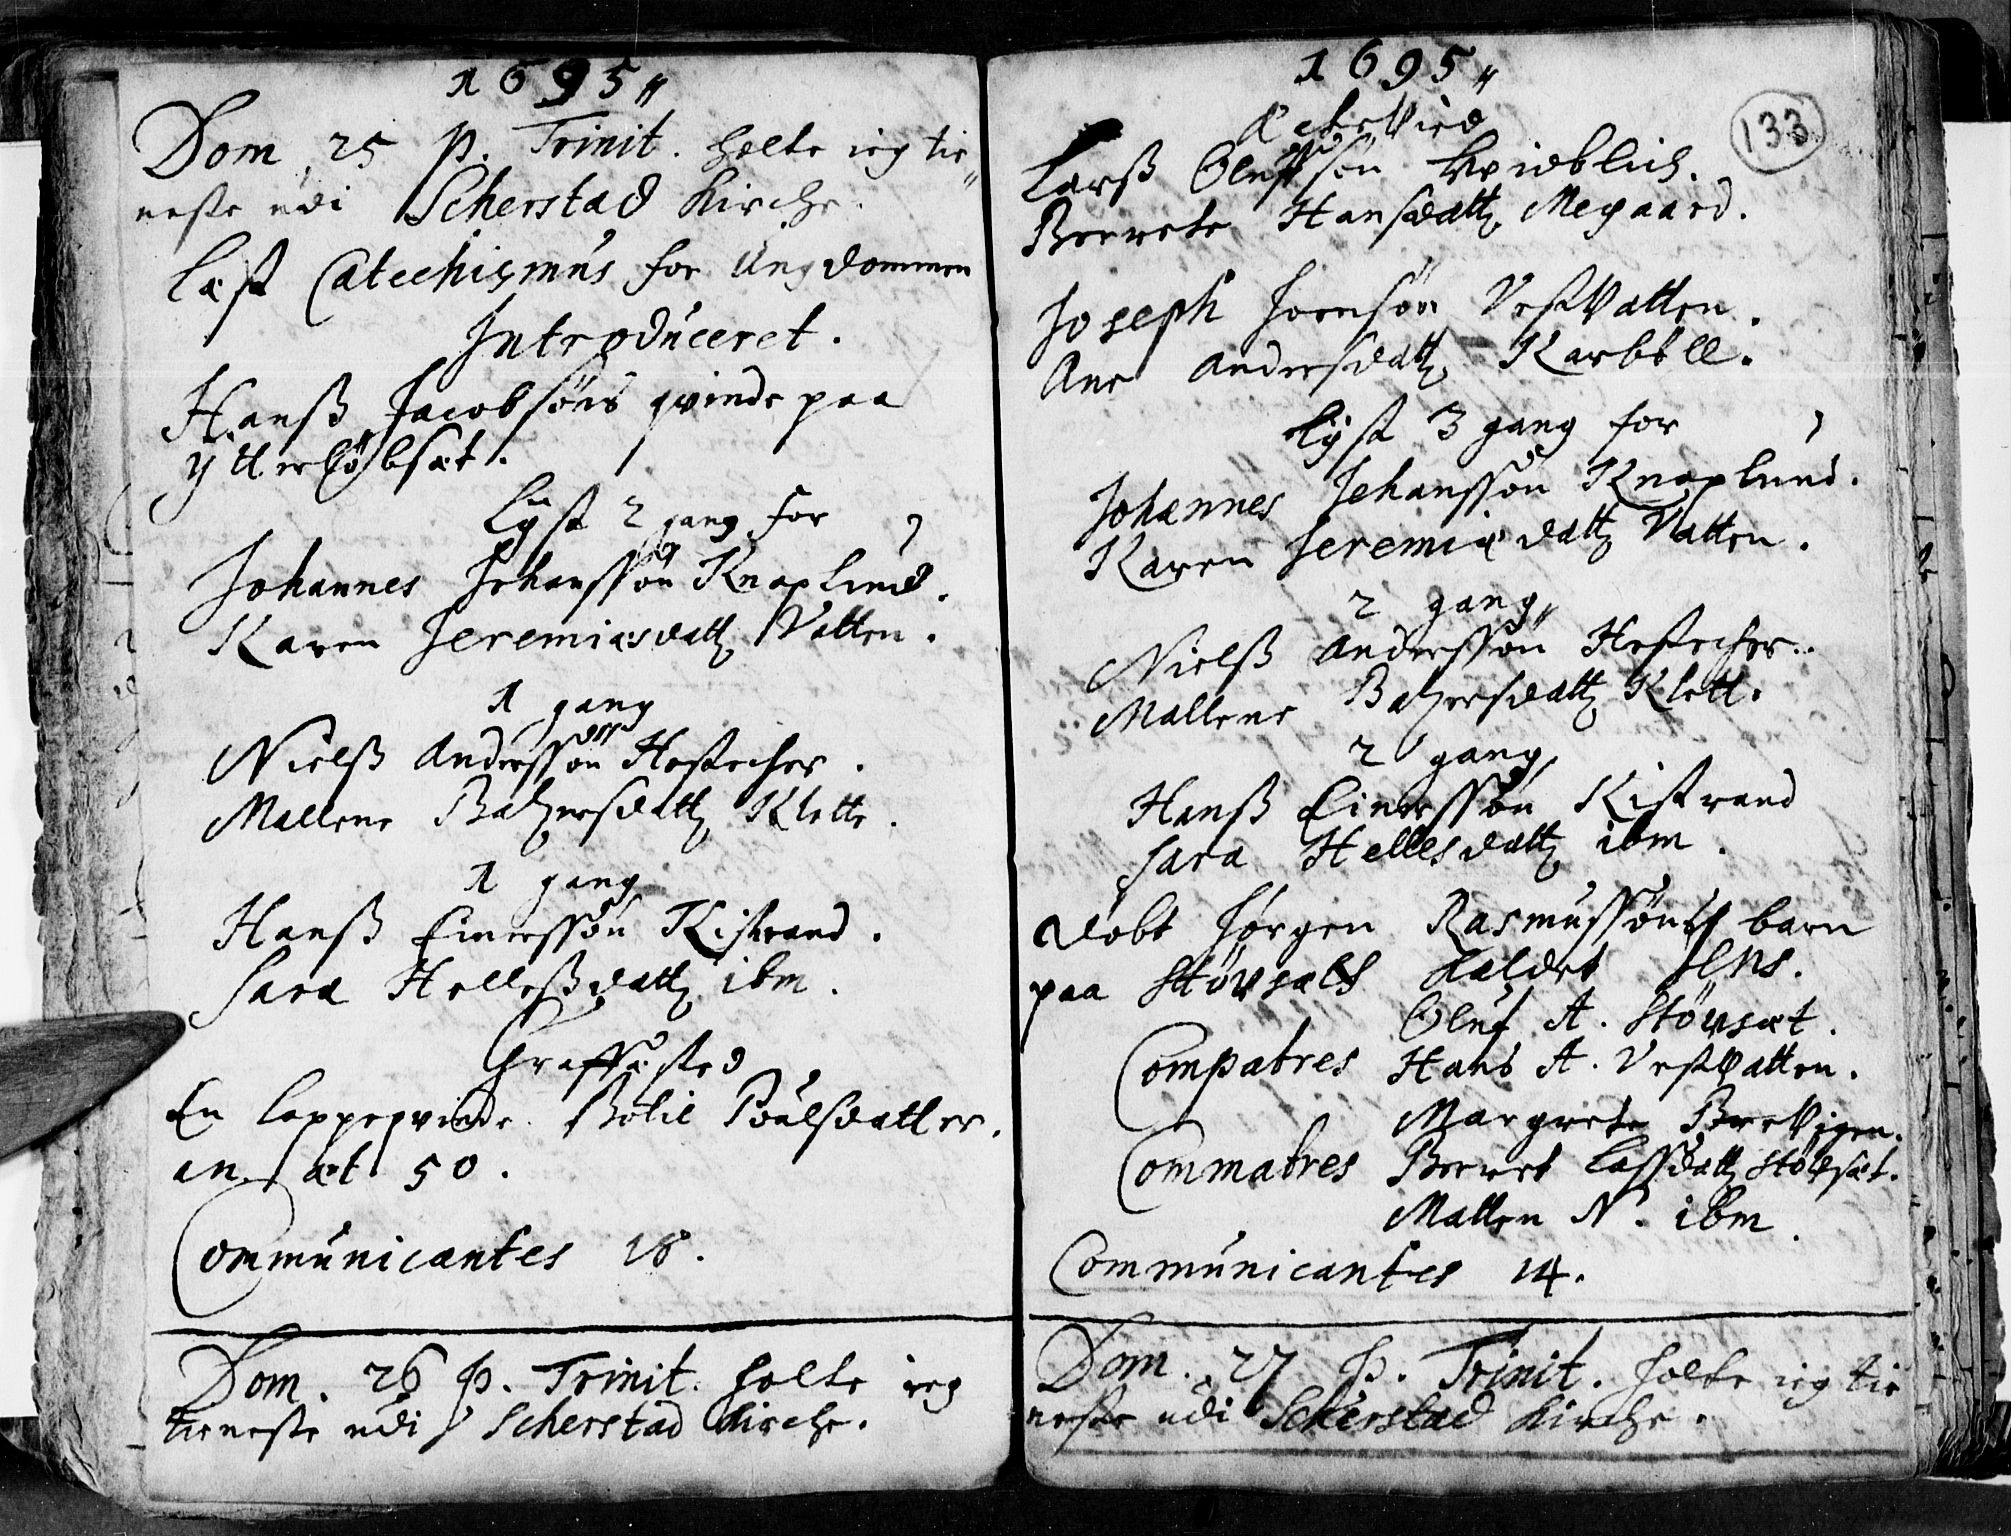 1695
Dom. 25 p. Trinit. holte ieg tie
neste udi Scherstad Kirche.
Læst Catechismus for Ungdommen
Introduceret.
Hanß Jacobsøns qvinde paa
Ytterløbsæt.
Lyst 2 gang for
Johannes Johanssøn Knaplund.
Karen Jeremiasdatt Vatten.
1 gang
Nielß Anderssøn
Mallene Baltzersdatt Klette.
1 gang
Hanß Einerssøn Kistrand.
Sara Helleßdatt ibm.
Graffæsted
En Lappeqvinde Botil Poulsdatter.
an. æt 50.
Communicantes 18.
Dom. 26 p. Trinit. holte ieg
tieneste udi Scherstad Kirche.
1695
133
Larß Olufssøn
Berrete Hansdatt Megaard.
Joseph Joensøn VestVatten.
Ane Andersdatt Karbøll.
Lyst 3 gang for
Johannes Johanssøn Knaplund.
Karen Jeremiædatt Vatten.
2 gang
Nielß Anderssøn
Mallene Baltzersdatt Klett.
2 gang
Hanß Einerssøn Kistrand
Sara Hellesdatt ibm.
Døbt Jørgen Rasmussøns barn
paa Støvsæt kaldet Jens.
Oluf A. Støvsæt.
Compatres Hans A. VestVatten.
Margrete BreVigen.
Commatres Berret Lassdatt Støvsæt.
Mallen N. ibm
Communicantes 14.
Dom. 27 p. Trinit. holte ieg tie
neste udi Scherstad Kirche.